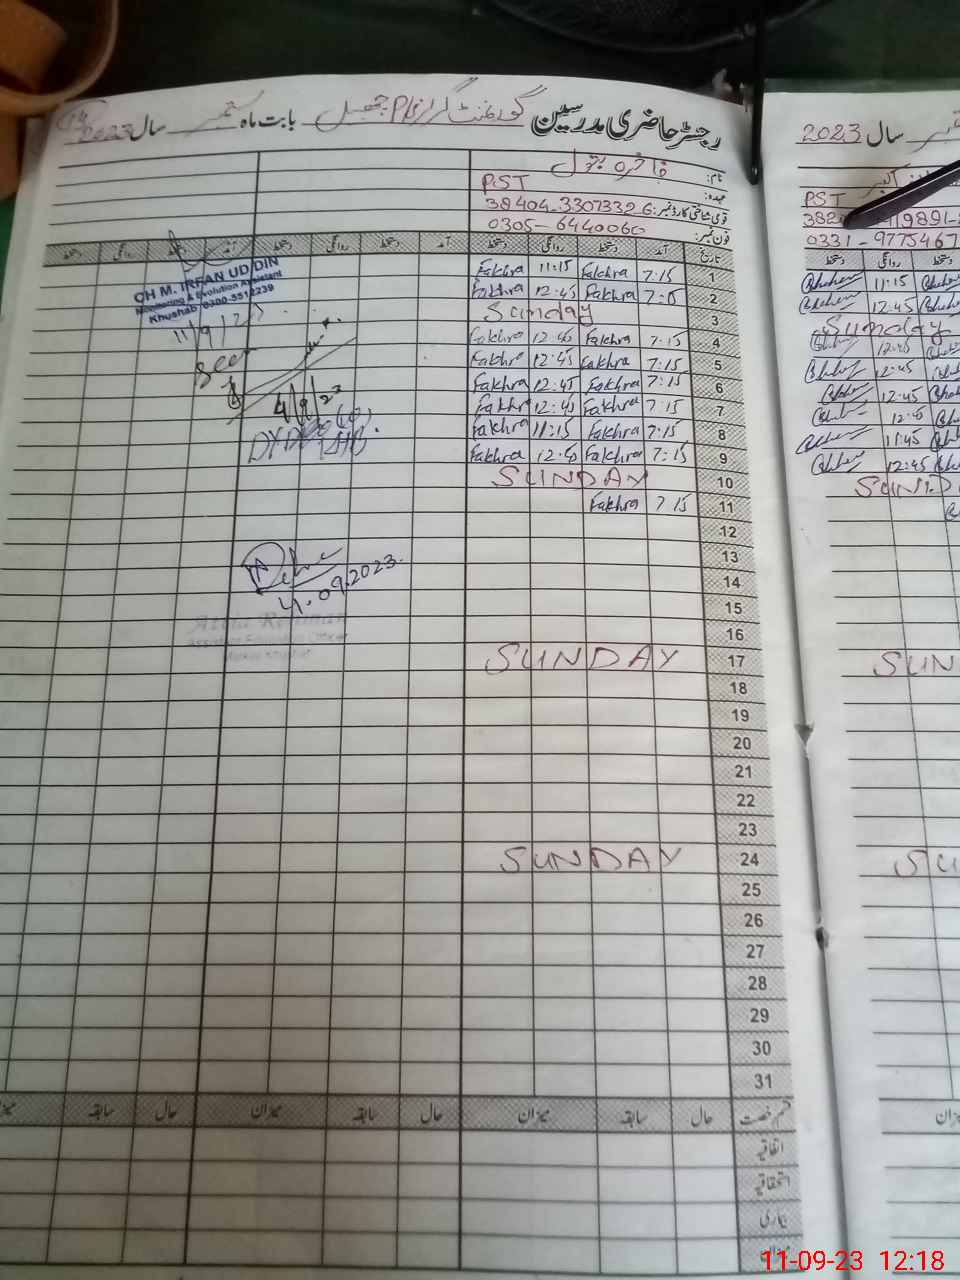 رجسٹر حاضری مدرسین گورنمنٹ گرلز بابت ماہ ستمبر سال 2023
نام: فاخرہ بتول
عہدہ: PST
قومی شناختی کارڈ نمبر: 38404-3307332-6
فون نمبر: 0305-6440060
تاریخ آمد دستخط روانگی دستخط آمد دستخط روانگی دستخط آمد دستخط روانگی دستخط
1 7:15 Fakhra 11:15 Fakhra
2 Fakhra 12:45 Fakhra
3 Sunday
4 7:15 Fakhra 12:45 Fakhra
5 7:15 Fakhra 12:45 Fakhr
6 7:15 Fakhra 12:45 Fakhra
7 7:15 Fakhra 12:45 Fakhr
8 7:15 Fakhra 11:15 Fakhra
9 7:15 Fakhra 12:45 Fakhra
10 SUNDAY
11 7:15 Fakhra
12
13
14
15
16
17 SUNDAY
18
19
20
21
22
23
24 SUNDAY
25
26
27
28
29
30
31
قسم رخصت حال سابقہ میزان حال سابقہ میزان حال سابقہ میزان
اتفاقیہ
استحقاقیہ
بیماری
میزان
CH M. IRFAN UD DIN
Monitoring & Evolution Assistant
Khushab 0300-5512239
11/9/23
Seen
4/9/23
11.09.2023.
Rehman
Assistant Education Officer
سال 2023
PST
0331-9775467
دستخط روانگی دستخط
11:15
12:45
Sunday
12:45
12:45
12:45
12:45
11:45
12:45
SUND
SUN
SU
11-09-23 12:18